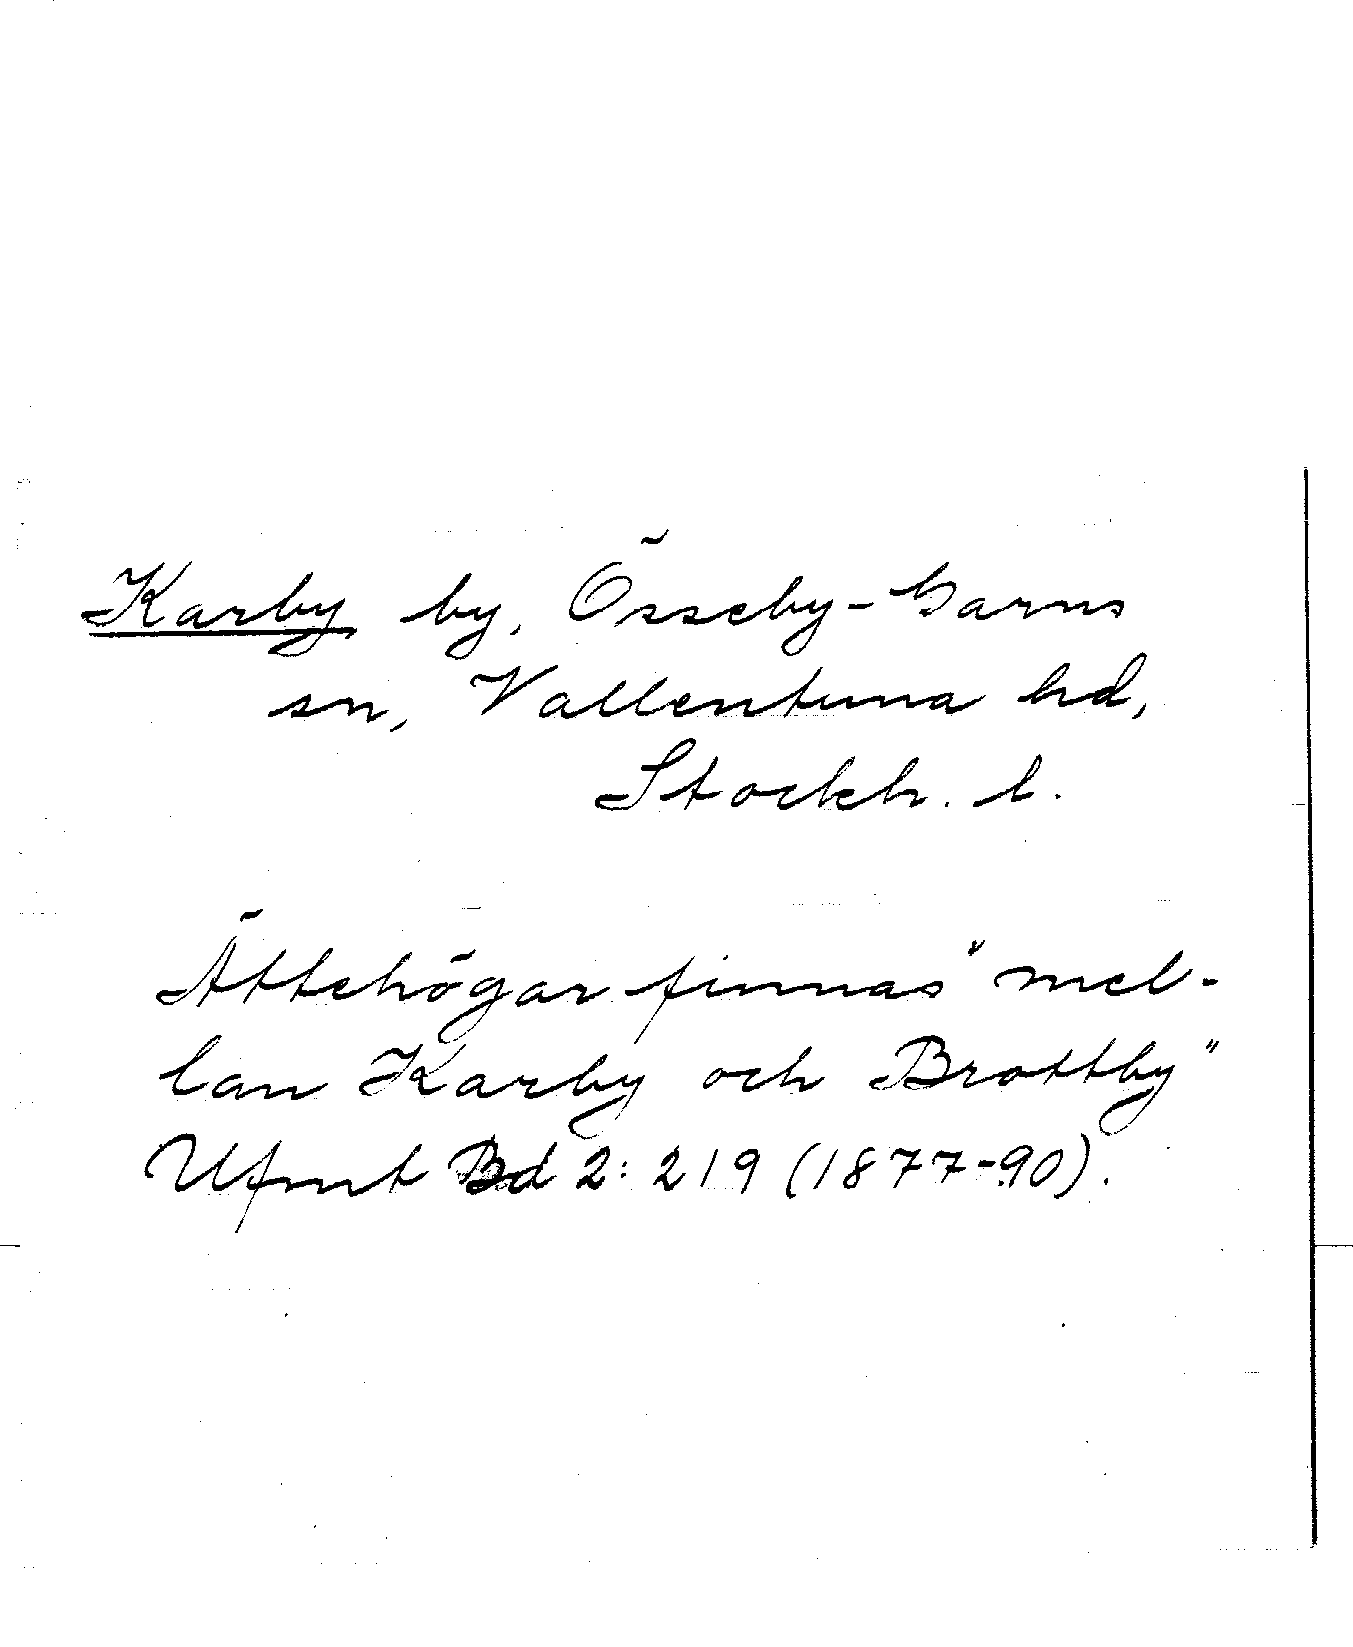 Karby by, Össeby-Garns
sn, Vallentuna hd,
Stockh. l.
Ättehögar finnas "mel-
lan Karby och Brottby"
Ufmt Bd 2: 219 (1877-90).